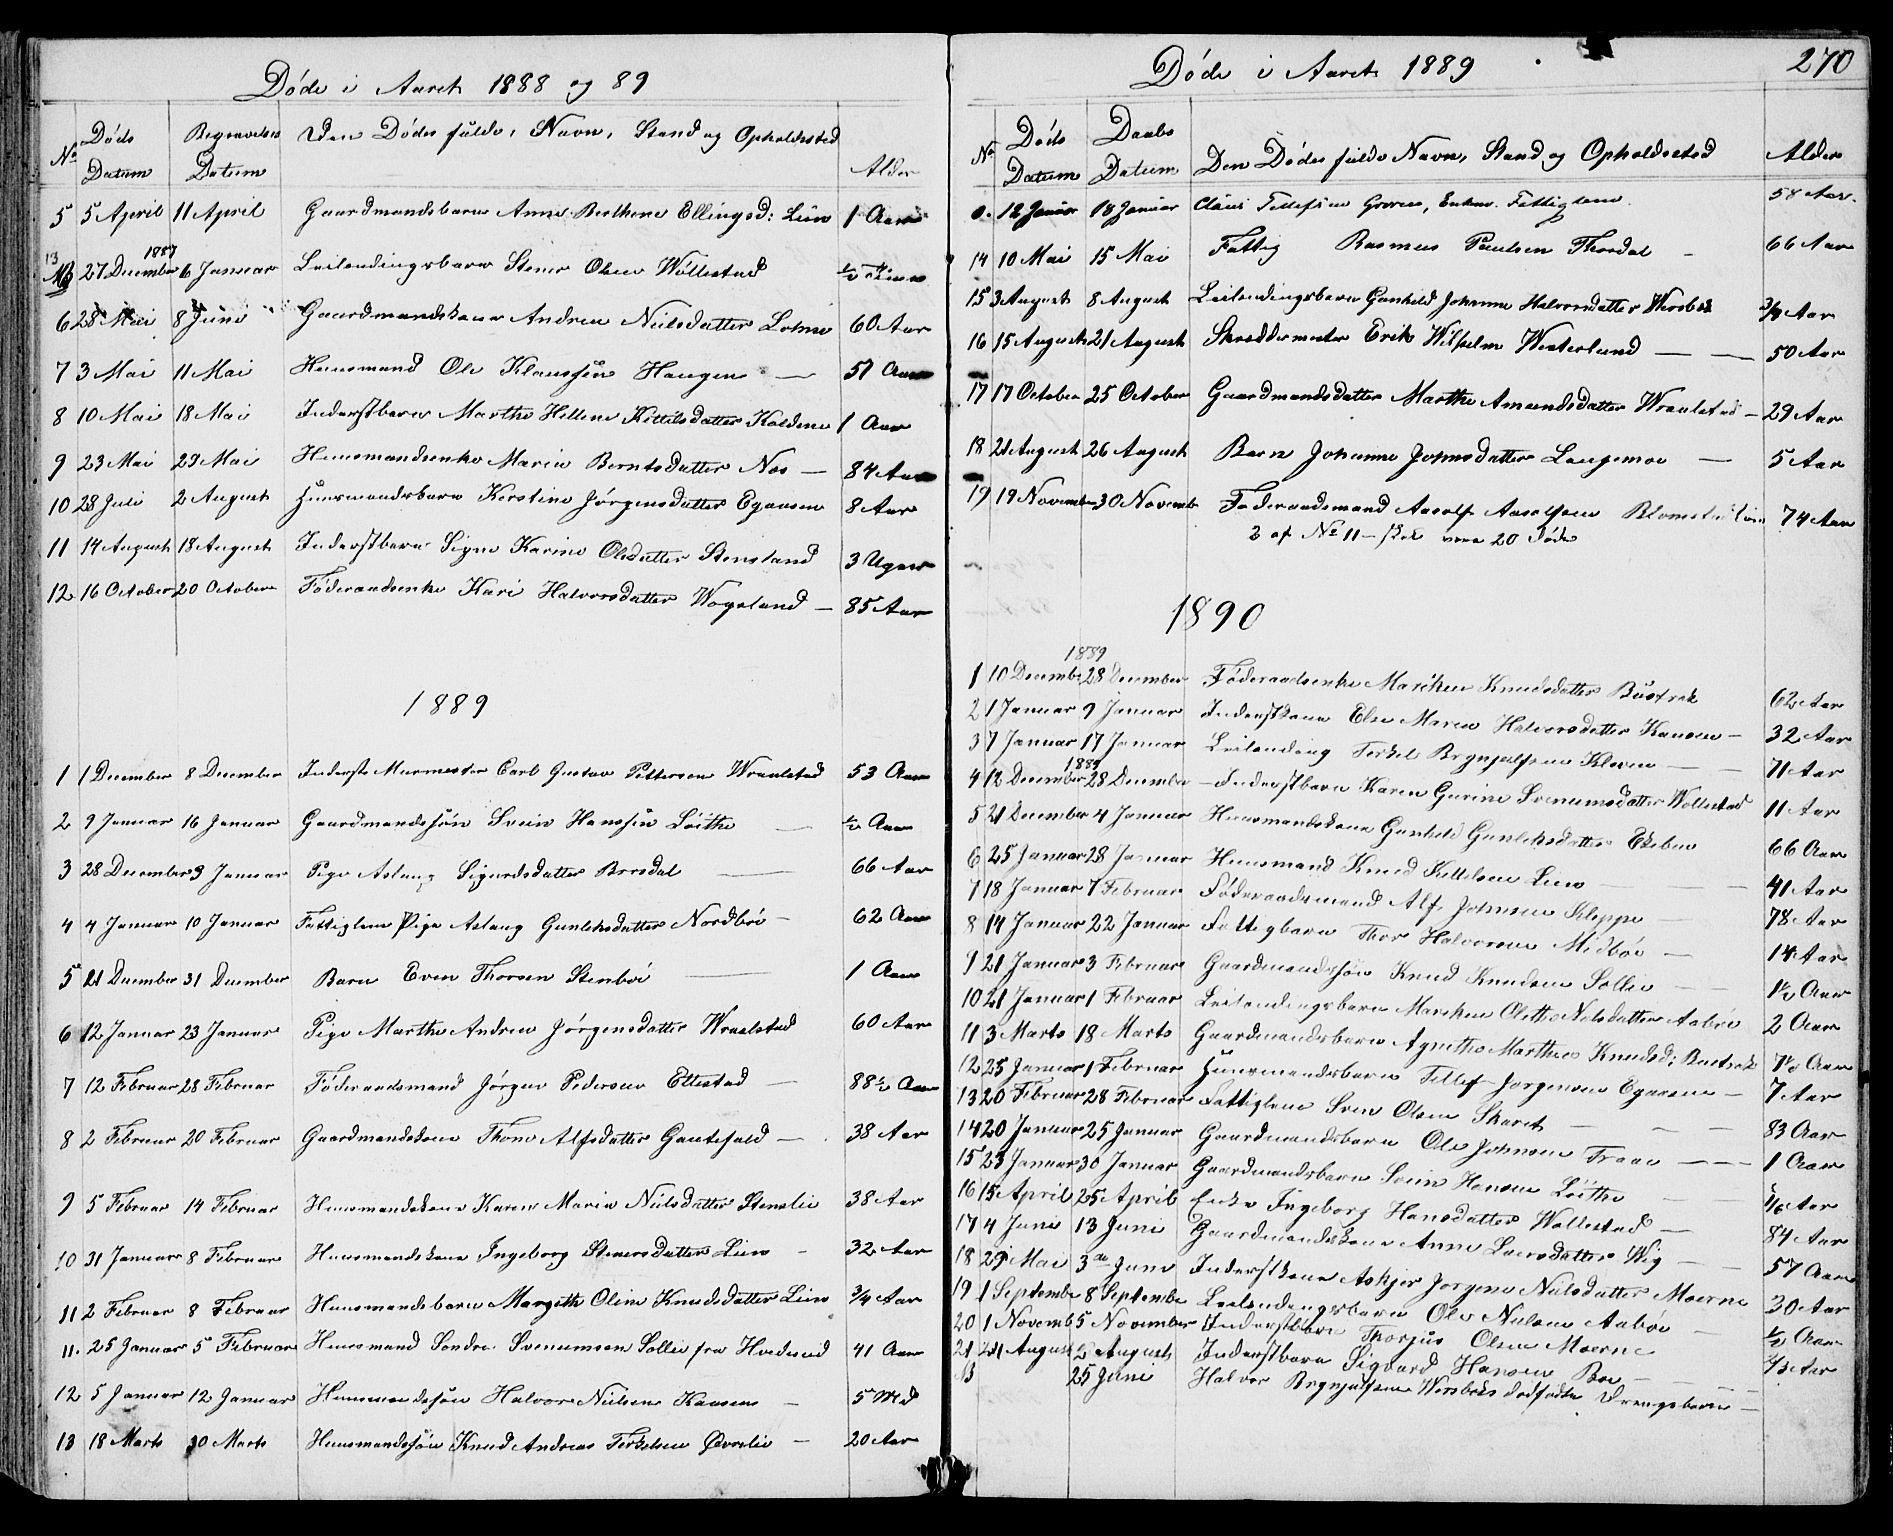 Døde i Aaret 1888 og 89
No Døds Datum Begravelses Datum Den Dødes fulde Navn, Stand og Opholdssted Alder
5 5 April 11 April Gaardmandsbarn Anne Berthene Ellingsd: Lien 1 Aar
13 NB 27 December 1887 6 Januar Leilendingsbarn Stener Olsen Wollestad ½
6 28 Mai 8 Juni Gaardmandskone Andrea Nielsdatter Lohne 60 Aar
7 3 Mai 11 Mai Huusmand Ole Klaussen Haugen — 51 Aar
8 10 Mai 18 Mai Inderstbarn Marthe Hellene Kittilsdatter Koldene 1 Aar
9 23 Mai 29 Mai Huusmandsenke Maria Berntsdatter Nes — 84 Aar
10 28 Juli 2 August Huusmandsbarn Kerstine Jørgensdatter Egaasen 8 Aar
11 14 August 18 August Inderstbarn Signe Karine Olsdatter Stensland 3 Uger
12 16 October 20 October Føderaadsenke Kari Halvorsdatter Wogsland — 85 Aar
1889
1 1 December 8 December Inderst Murmester Carl Gustav Pettersen Wraalstad 53 Aar
2 9 Januar 16 Januar Gaardmandssøn Svein Hanssen Løithe — ½ Aar
3 28 December 3 Januar Pige Aslaug Sigurdsdatter Borsdal — 66 Aar
4 4 Januar 10 Januar Fattiglem Pige Aslaug Gunleksdatter Nordbøe — 62 Aar
5 21 December 31 December Barn Even Thorsen Stenbøe — 1 Aar
6 12 Januar 23 Januar Pige Marthe Andrea Jørgensdatter Wraalstad 60 Aar
7 12 Februar 28 Februar Føderaadsmand Jørgen Pedersen Ettestad — 88½ Aar
8 2 Februar 20 Februar Gaardmandskone Thone Alfsdatter Gautefald — 38 Aar
9 5 Februar 14 Februar Huusmandskone Karen Maria Nielsdatter Stenslie 38 Aar
10 31 Januar 8 Februar Huusmandskone Ingeborg Stenersdatter Lien — 32 Aar
11 2 Februar 8 Februar Huusmandsbarn Margith Oline Knudsdatter Lien ¾ Aar
11. 25 Januar 5 Februar Huusmand Sondre Svenumsen Sollie fra Hvideseid 41 Aar
12 5 Januar 12 Januar Huusmandssøn Halvor Nielsen Kaasen — 5 Md
13 18 Marts 30 Marts Huusmandssøn Knud Andreas Terkelsen Øvrelie — 20 Aar
Døde i Aaret 1889 270
No Døds Datum Daabs Datum Den Dødes fulde Navn, Stand og Opholdssted Alder
0. 12 Januar 18 Januar Claus Tellefsen Groven, Enkem. Fattiglem. 58 Aar.
14 10 Mai 15 Mai Fattig Rasmus Paulsen Thordal — 66 Aar
15 3 August 8 August Leilendingsbarn Gunhild Johanne Halvorsdatter Wersbek Aar
16 15 August 21 August Skreddermester Erik Wilhelm Westerlund — 50 Aar
17 17 October 25 October Gaardmandsdatter Marthe Amundsdatter Wraalstad — 29 Aar
18 21 August 26 August Barn Johanne Johnsdatter Langemoe — 5 Aar
19 19 November 30 Novemb Føderaadsmand Aasolf Aasolfsen 74 Aar
2 af No 11 — 20 Døde
1890
1889
1 10 Decembe 28 December Føderaadsenke Mariken Knudsdatter Bustrak 62 Aar
2 1 Januar 9 Januar Inderstkone Else Maren Halvorsdatter Kaasen — 32 Aar
3 7 Januar 17 Januar Leilending Terkel Brynjulfsen Kleven — 71 Aar
1889
4 12 December 28 December — Inderstbarn Karen Gurine Svenumsdatter Wollestad 11 Aar
5 21 December 4 Januar Huusmandskone Gunhild Gunleksdatter Ekebu 66 Aar
6 25 Januar 28 Januar Huusmand Knud Kittelsen Lien — 41 Aar
7 18 Januar 7 Februar Føderaadsmand Alf Johnsen Kleppe — 78 Aar
8 14 Januar 22 Januar Fattigbarn Thor Halvorsen Midbøe — 14 Aar
9 21 Januar 3 Februar Gaardmandssøn Knud Knudsen Sollie — 1½ Aar
10 21 Januar 1 Februar Leilendingsbarn Mariken Olethe Nielsdatter Aabøe 2 Aar
11 3 Marts 18 Marts Gaardmandsbarn Agnethe Marthea Knudsd: Bustrak 7½ Aar
12 25 Januar 1 Februar Huusmandsbarn Tellef Jørgensen Egaasen — 7 Aar
13 20 Februar 28 Februar Fattiglem Sven Olsen Skaret — 83 Aar
14 20 Januar 25 Januar Gaardmandsbarn Ole Johnsen Traae — 1 Aar
15 23 Januar 30 Januar Gaardmandsbarn Svein Hansen Løithe — Aar
16 15 April 25 April Enke Ingeborg Hansdatter Wollestad — 84 Aar
17 4 Juni 13 Juni Gaardmandskone Anne Larsdatter Wig — 57 Aar
18 29 Mai 3de Juni Inderstkone Askjer Jorgine Nielsdatter Moerne 30 Aar
19 1 Septembe 8 Septembe Leilendingsbarn Ole Nielsen Aabøe — ½ Aar
20 1 Novemb 5 November Inderstbarn Thorjus Olsen Moerne Aar
21 21 August August Inderstbarn Sigvard Hansen Boe —
B 25 Juni Halvor Brynjulfsen Wersbeks dødfødte Drengebarn —